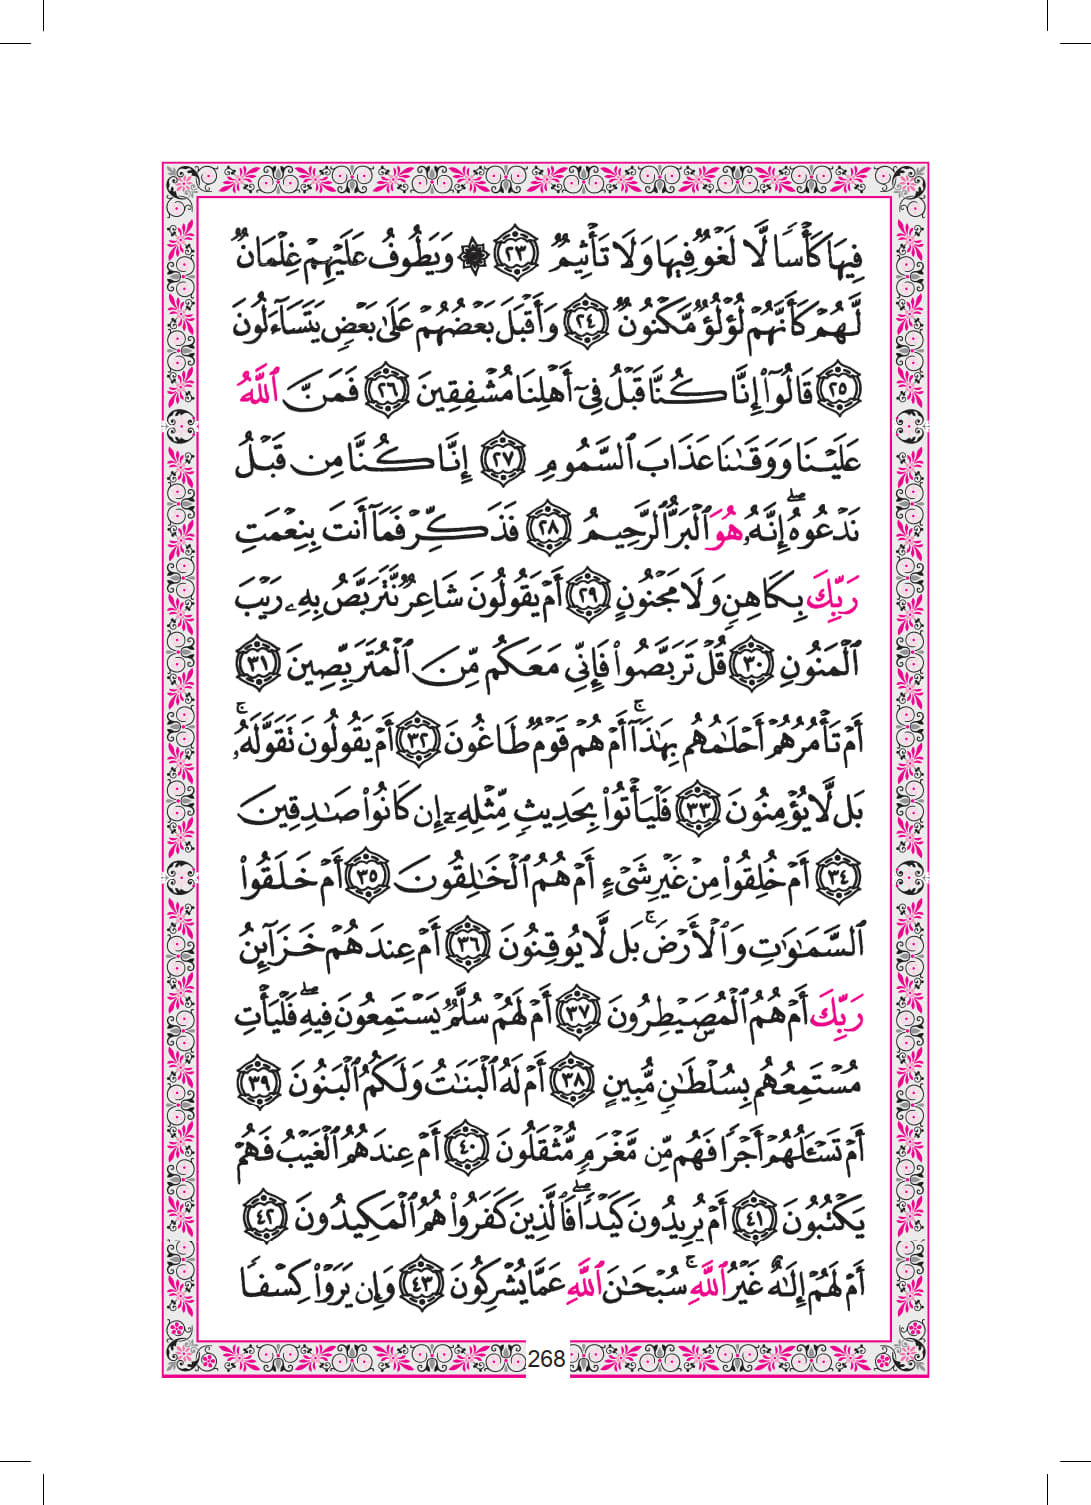 فِيهَا كَأْسًا لَّا لَغْوٌ فِيهَا وَلَا تَأْثِيمٌ ﴿٢٣﴾ ۞ وَيَطُوفُ عَلَيْهِمْ غِلْمَانٌ
لَّهُمْ كَأَنَّهُمْ لُؤْلُؤٌ مَّكْنُونٌ ﴿٢٤﴾ وَأَقْبَلَ بَعْضُهُمْ عَلَىٰ بَعْضٍ يَتَسَآءَلُونَ
﴿٢٥﴾ قَالُوٓا۟ إِنَّا كُنَّا قَبْلُ فِىٓ أَهْلِنَا مُشْفِقِينَ ﴿٢٦﴾ فَمَنَّ ٱللَّهُ
عَلَيْنَا وَوَقَىٰنَا عَذَابَ ٱلسَّمُومِ ﴿٢٧﴾ إِنَّا كُنَّا مِن قَبْلُ
نَدْعُوهُ ۖ إِنَّهُۥ هُوَ ٱلْبَرُّ ٱلرَّحِيمُ ﴿٢٨﴾ فَذَكِّرْ فَمَآ أَنتَ بِنِعْمَتِ
رَبِّكَ بِكَاهِنٍ وَلَا مَجْنُونٍ ﴿٢٩﴾ أَمْ يَقُولُونَ شَاعِرٌ نَّتَرَبَّصُ بِهِۦ رَيْبَ
ٱلْمَنُونِ ﴿٣٠﴾ قُلْ تَرَبَّصُوا۟ فَإِنِّى مَعَكُم مِّنَ ٱلْمُتَرَبِّصِينَ ﴿٣١﴾
أَمْ تَأْمُرُهُمْ أَحْلَـٰمُهُم بِهَـٰذَآ ۚ أَمْ هُمْ قَوْمٌ طَاغُونَ ﴿٣٢﴾ أَمْ يَقُولُونَ تَقَوَّلَهُۥ ۚ
بَل لَّا يُؤْمِنُونَ ﴿٣٣﴾ فَلْيَأْتُوا۟ بِحَدِيثٍ مِّثْلِهِۦٓ إِن كَانُوا۟ صَـٰدِقِينَ
﴿٣٤﴾ أَمْ خُلِقُوا۟ مِنْ غَيْرِ شَىْءٍ أَمْ هُمُ ٱلْخَـٰلِقُونَ ﴿٣٥﴾ أَمْ خَلَقُوا۟
ٱلسَّمَـٰوَٰتِ وَٱلْأَرْضَ ۚ بَل لَّا يُوقِنُونَ ﴿٣٦﴾ أَمْ عِندَهُمْ خَزَآئِنُ
رَبِّكَ أَمْ هُمُ ٱلْمُصَۣيْطِرُونَ ﴿٣٧﴾ أَمْ لَهُمْ سُلَّمٌ يَسْتَمِعُونَ فِيهِ ۖ فَلْيَأْتِ
مُسْتَمِعُهُم بِسُلْطَـٰنٍ مُّبِينٍ ﴿٣٨﴾ أَمْ لَهُ ٱلْبَنَـٰتُ وَلَكُمُ ٱلْبَنُونَ ﴿٣٩﴾
أَمْ تَسْـَٔلُهُمْ أَجْرًا فَهُم مِّن مَّغْرَمٍ مُّثْقَلُونَ ﴿٤٠﴾ أَمْ عِندَهُمُ ٱلْغَيْبُ فَهُمْ
يَكْتُبُونَ ﴿٤١﴾ أَمْ يُرِيدُونَ كَيْدًا ۖ فَٱلَّذِينَ كَفَرُوا۟ هُمُ ٱلْمَكِيدُونَ ﴿٤٢﴾
أَمْ لَهُمْ إِلَـٰهٌ غَيْرُ ٱللَّهِ ۚ سُبْحَـٰنَ ٱللَّهِ عَمَّا يُشْرِكُونَ ﴿٤٣﴾ وَإِن يَرَوْا۟ كِسْفًا
268